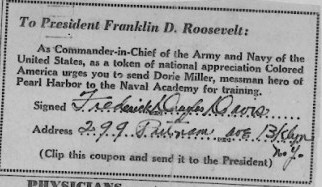 To President Franklin D. Roosevelt:
As Commander-in-Chief of the Army and Navy of the
United States, as a token of national appreciation Colored
America urges you to send Dorie Miller, messman hero of
Pearl Harbor to the Naval Academy for training.
Signed Frederick Davis
Address 299 Putnam ave Bklyn
N.Y.
(Clip this coupon and send it to the President)
PHYSICIANS